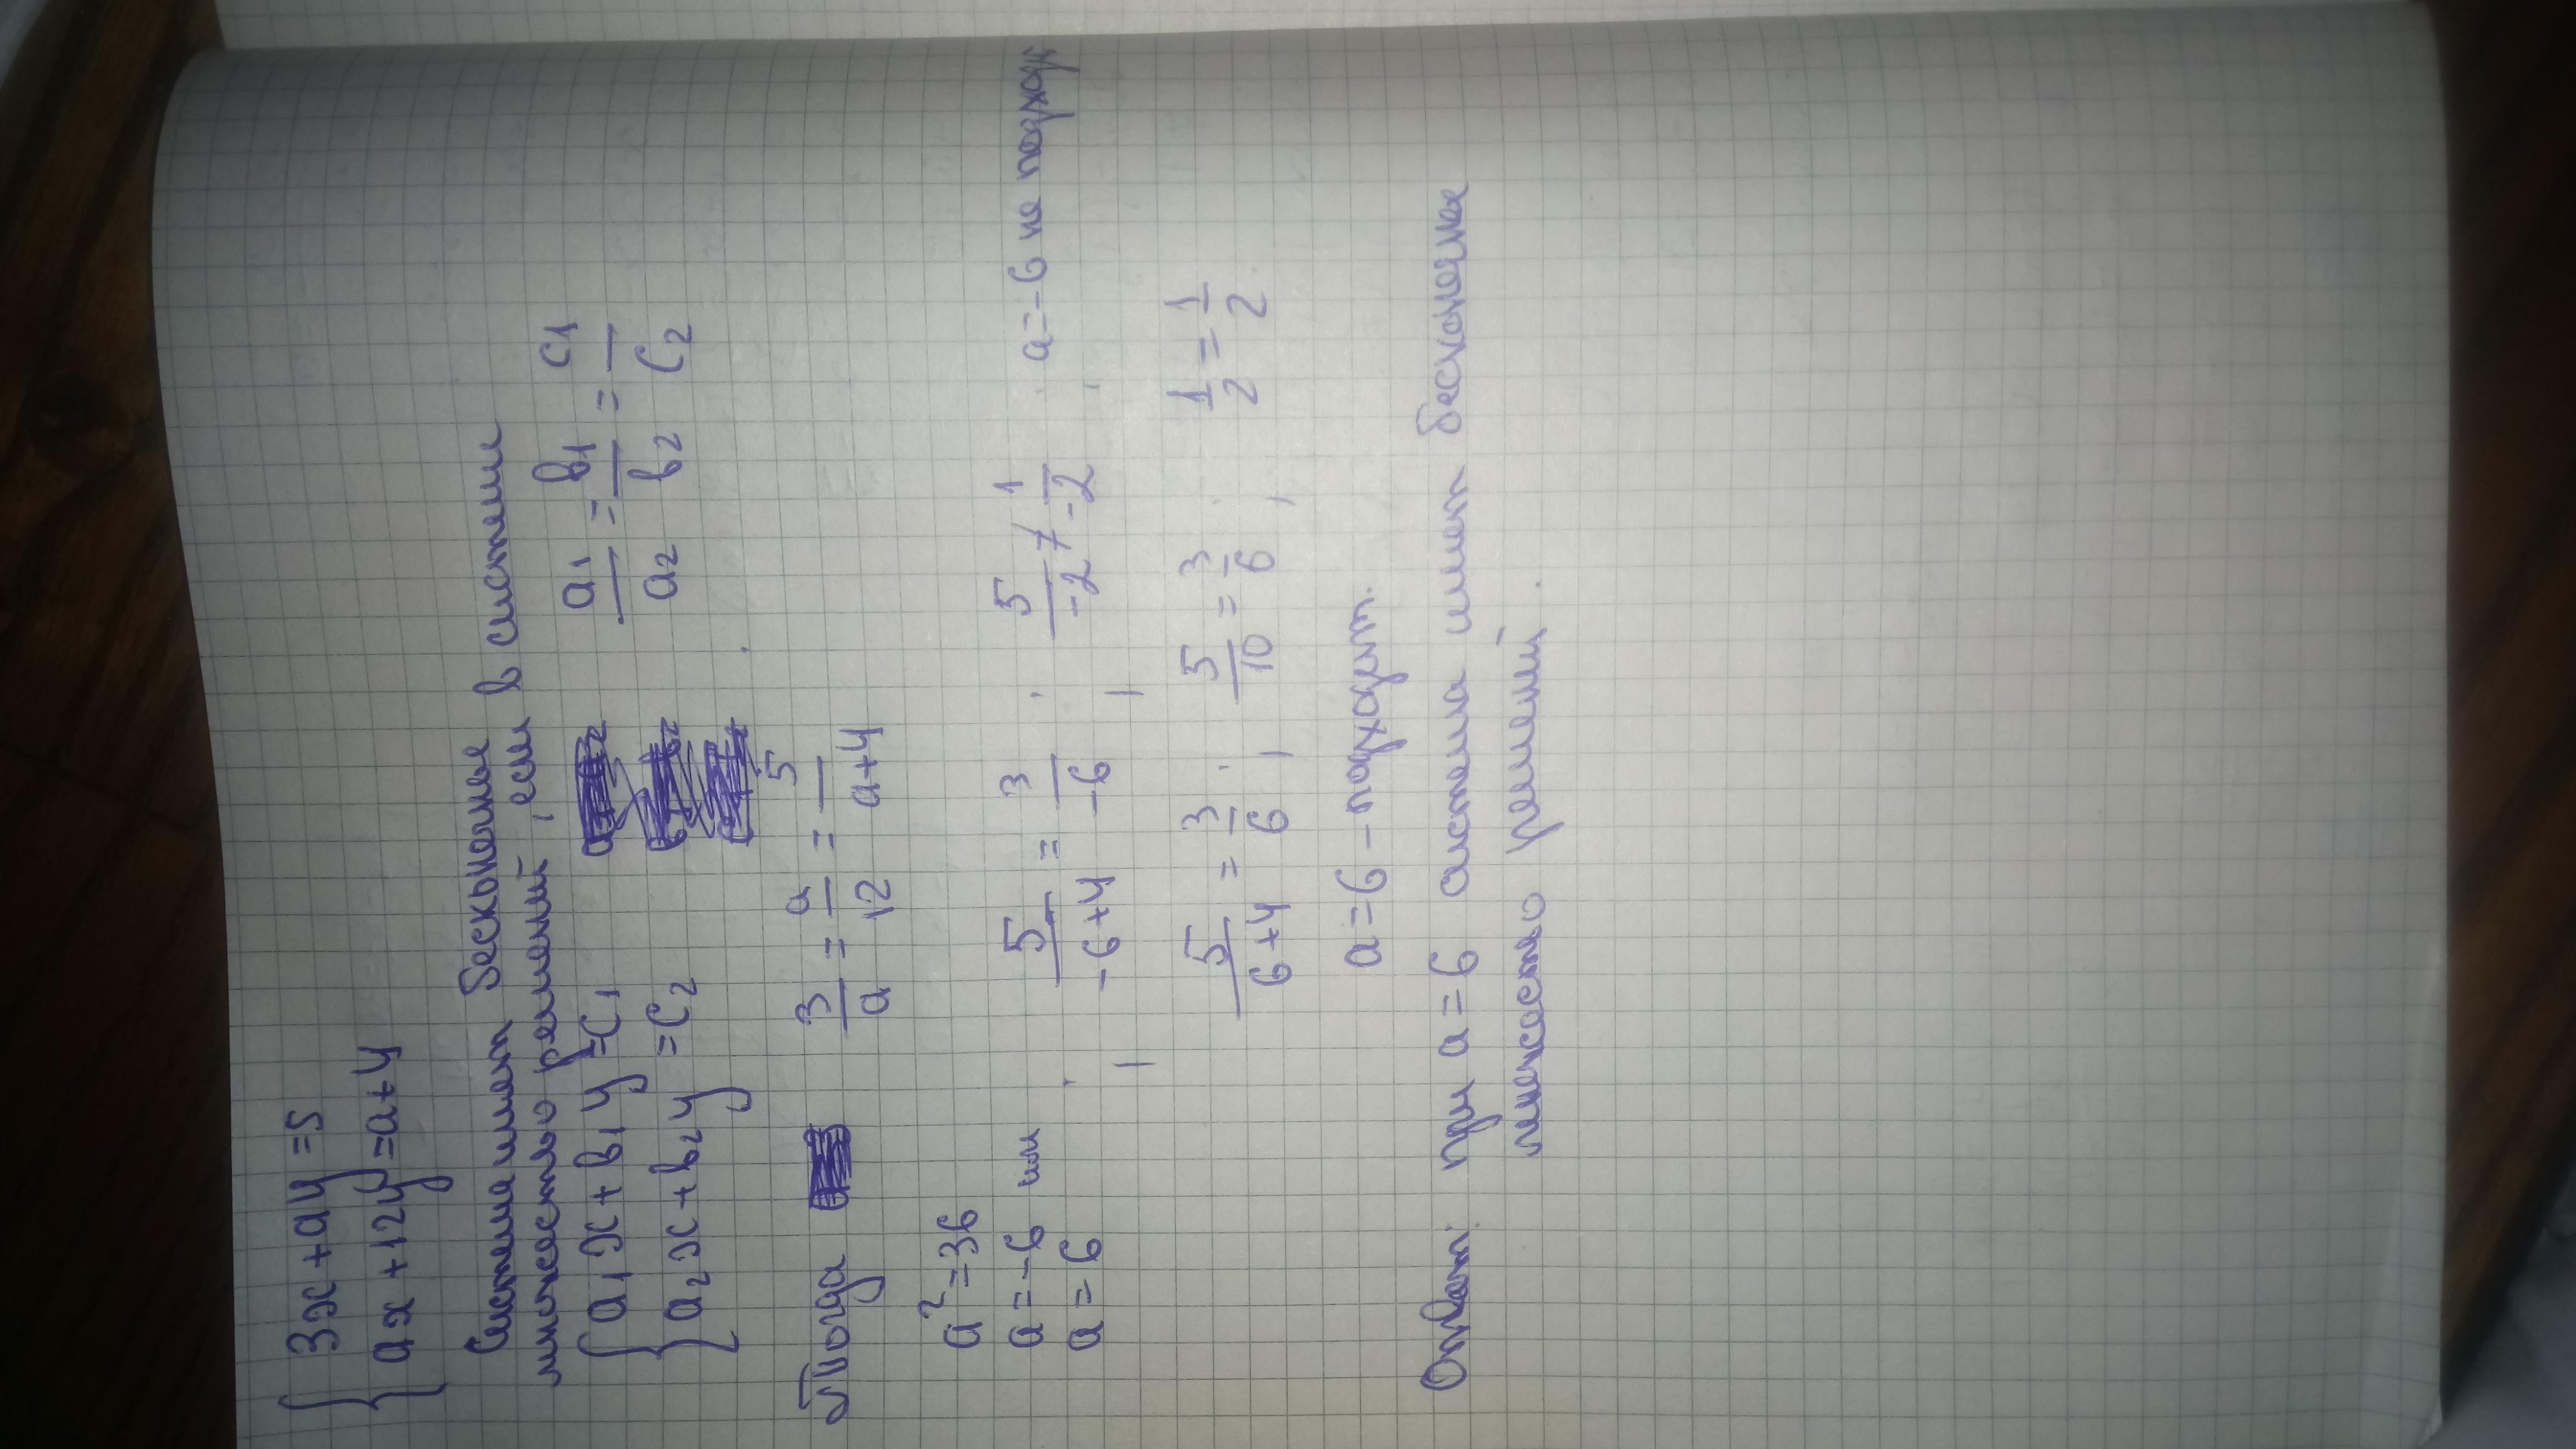 { 3x + ay = 5
{ ax + 12y = a + 4
Система имеет бесконечные
множество решений, если в системи
{ a₁x + b₁y = c₁ a₁/a₂ = b₁/b₂ = c₁/c₂
{ a₂x + b₂y = c₂
Тогда 3/a = a/12 = 5/(a+4)
a² = 36
a = -6 или ; 5/(-6+4) = 3/-6 ; 5/-2 ≠ 1/-2 ; a = -6 не подходи
a = 6
5/(6+4) = 3/6 ; 5/10 = 3/6 ; 1/2 = 1/2
a = 6 - подходит.
Ответ: при a = 6 система имеет бесконечная
множество решений.